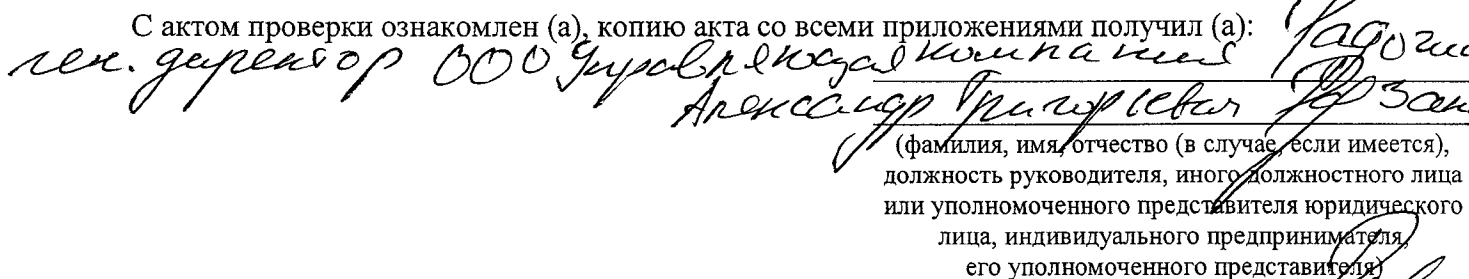 С актом проверки ознакомлен (а), копию акта со всеми приложениями получил (а):
ген. директор ООО Управляющая компания
Александр Григорьевич
(фамилия, имя, отчество (в случае, если имеется),
должность руководителя, иного должностного лица
или уполномоченного представителя юридического
лица, индивидуального предпринимателя,
его уполномоченного представителя)